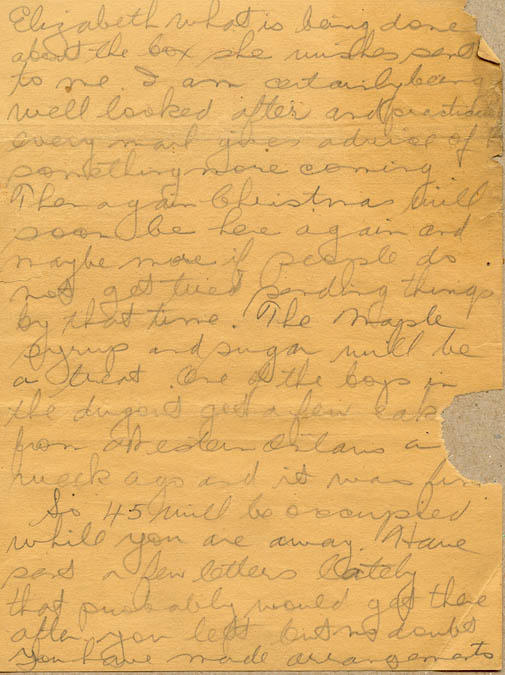 Elizabeth what is being done
about the box she wishes sent
to me. I am certainly being
well looked after and
every mail gives advice of
something more coming
Then again Christmas will
soon be here again and
maybe more if people do
not get tired sending things
by that time. The Maple
syrup and sugar will be
a treat. One of the boys in
the dugout got a few
from Western Ontario a
week ago and it was
So 45 will be occupied
while you are away. Have
sent a few letters lately
that probably would get there
after you left but no doubt
you have made arrangements